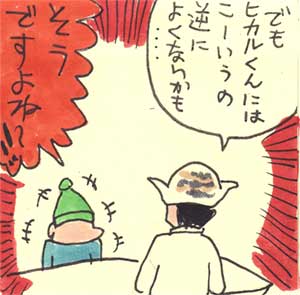 でも
ヒカルくんには
こーいうの
逆に
よくないかも
・・・・
そう
ですよね!!